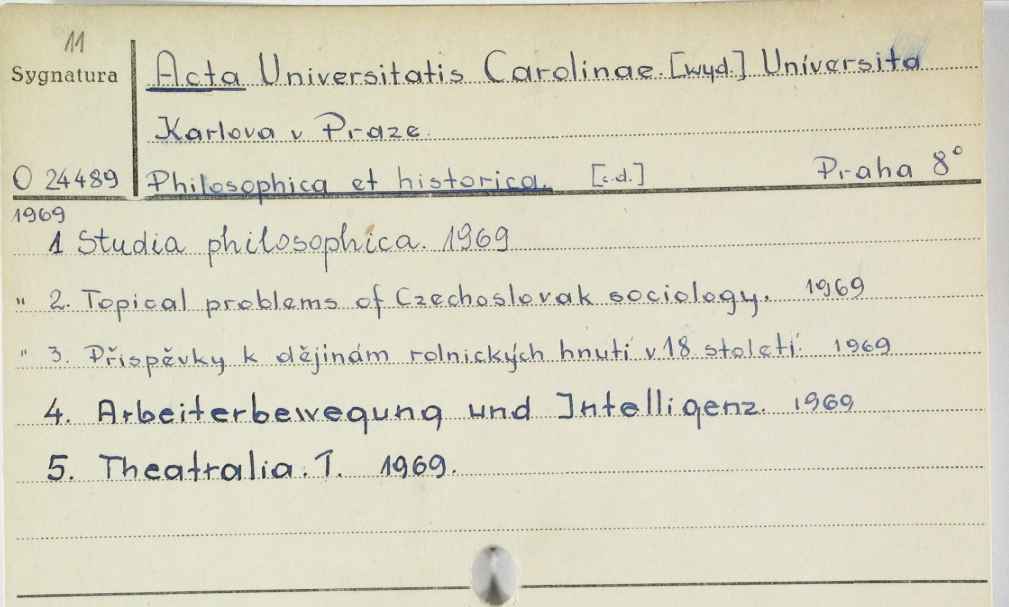 11
Sygnatura
Acta Universitatis Carolinae. [wyd.] Universita
Karlova v Praze.
O 24489 Philosophica et historica. [c.d.] Praha 8°
1969
1 Studia philosophica. 1969
" 2. Topical problems of Czechoslovak sociology. 1969
" 3. Přispěvky k dějinám rolnických hnutí v 18 století. 1969
4. Arbeiterbewegung und Intelligenz. 1969
5. Theatralia. I. 1969.